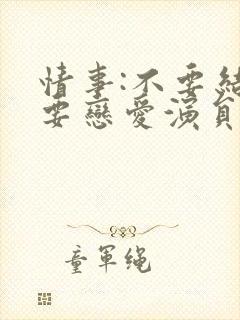 情事:不要結
要戀愛演員
童軍繩